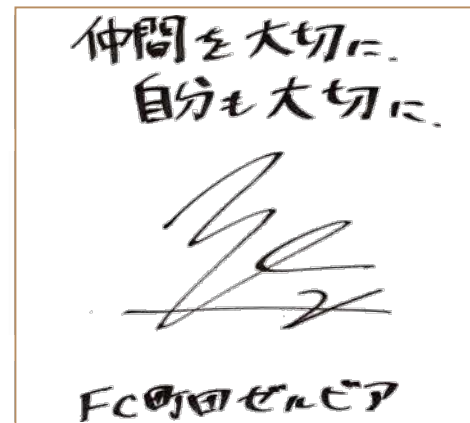 仲間を大切に.
自分も大切に.
FC町田ゼルビア